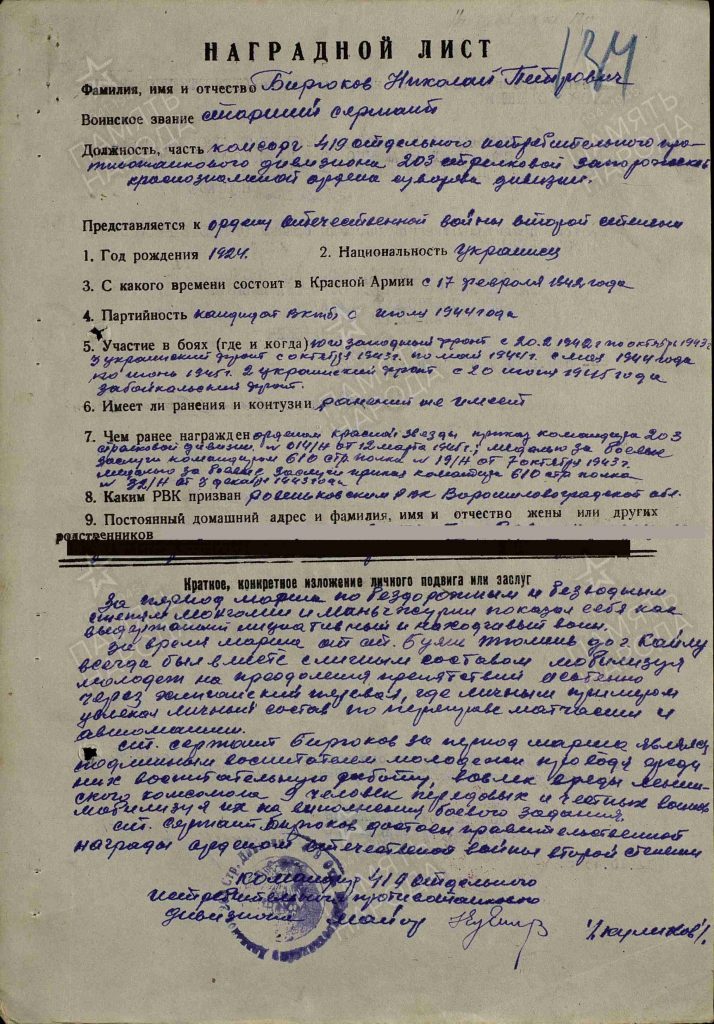 134
НАГРАДНОЙ ЛИСТ
Фамилия, имя и отчество Бирюков Николай Петрович
Воинское звание старший сержант
Должность, часть комсорг 419 отдельного истребительного про-
тивотанкового дивизиона 203 стрелковой Запорожской
краснознаменной ордена суворова дивизии.
Представляется к ордену отечественной войны второй степени
1. Год рождения 1924. 2. Национальность украинец
3. С какого времени состоит в Красной Армии с 17 февраля 1942 года
4. Партийность кандидат вкпб с июля 1944 года
5. Участие в боях (где и когда) юго западный фронт с 20.2.1942 г по октябрь 1943 г
3 украинский фронт с октября 1943 г. по май 1944 г. с мая 1944 года
по июнь 1945 г. 2 украинский фронт с 20 июля 1945 года
забайкальский фронт.
6. Имеет ли ранения и контузии ранений не имеет
7. Чем ранее награжден орденом красной звезды приказ командира 203
стрелковой дивизии n 014/н от 12 марта 1945 г; медалью за боевые
заслуги командиром 610 стр полка n 19/н от 7 октября 1943 г.
медалью за боевые заслуги приказ командира 610 стр полка
n 32/н от 3 декабря 1943 года
8. Каким РВК призван Ровеньковским рвк Ворошиловградской обл.
9. Постоянный домашний адрес и фамилия, имя и отчество жены или других
родственников
Краткое, конкретное изложение личного подвига или заслуг
За период марша по бездорожным и безводным
степям монголии и маньчжурии показал себя как
выдержанный инициативный и находчивый воин.
За время марша от ст. Буян тюмень до г. Кайлу
всегда был вместе с личным составом мобилизуя
молодеж на преодоления препятствий особенно
через хинганский перевал, где личным примером
увлекал личный состав по переправе матчасти и
автомашин.
ст. сержант Бирюков за период марша являлся
подлинным воспитателем молодежи проводя среди
них воспитательную работу, вовлек в ряды ленин-
ского комсомола 9 человек передовых и честных воинов
мобилизуя их на выполнения боевого задания.
ст. сержант Бирюков достоен правительственной
награды орденом отечественной войны второй степени
Командир 419 отдельного
истребительного противотанкового
дивизиона майор /Куликов/.
ПАМЯТЬ НАРОДА